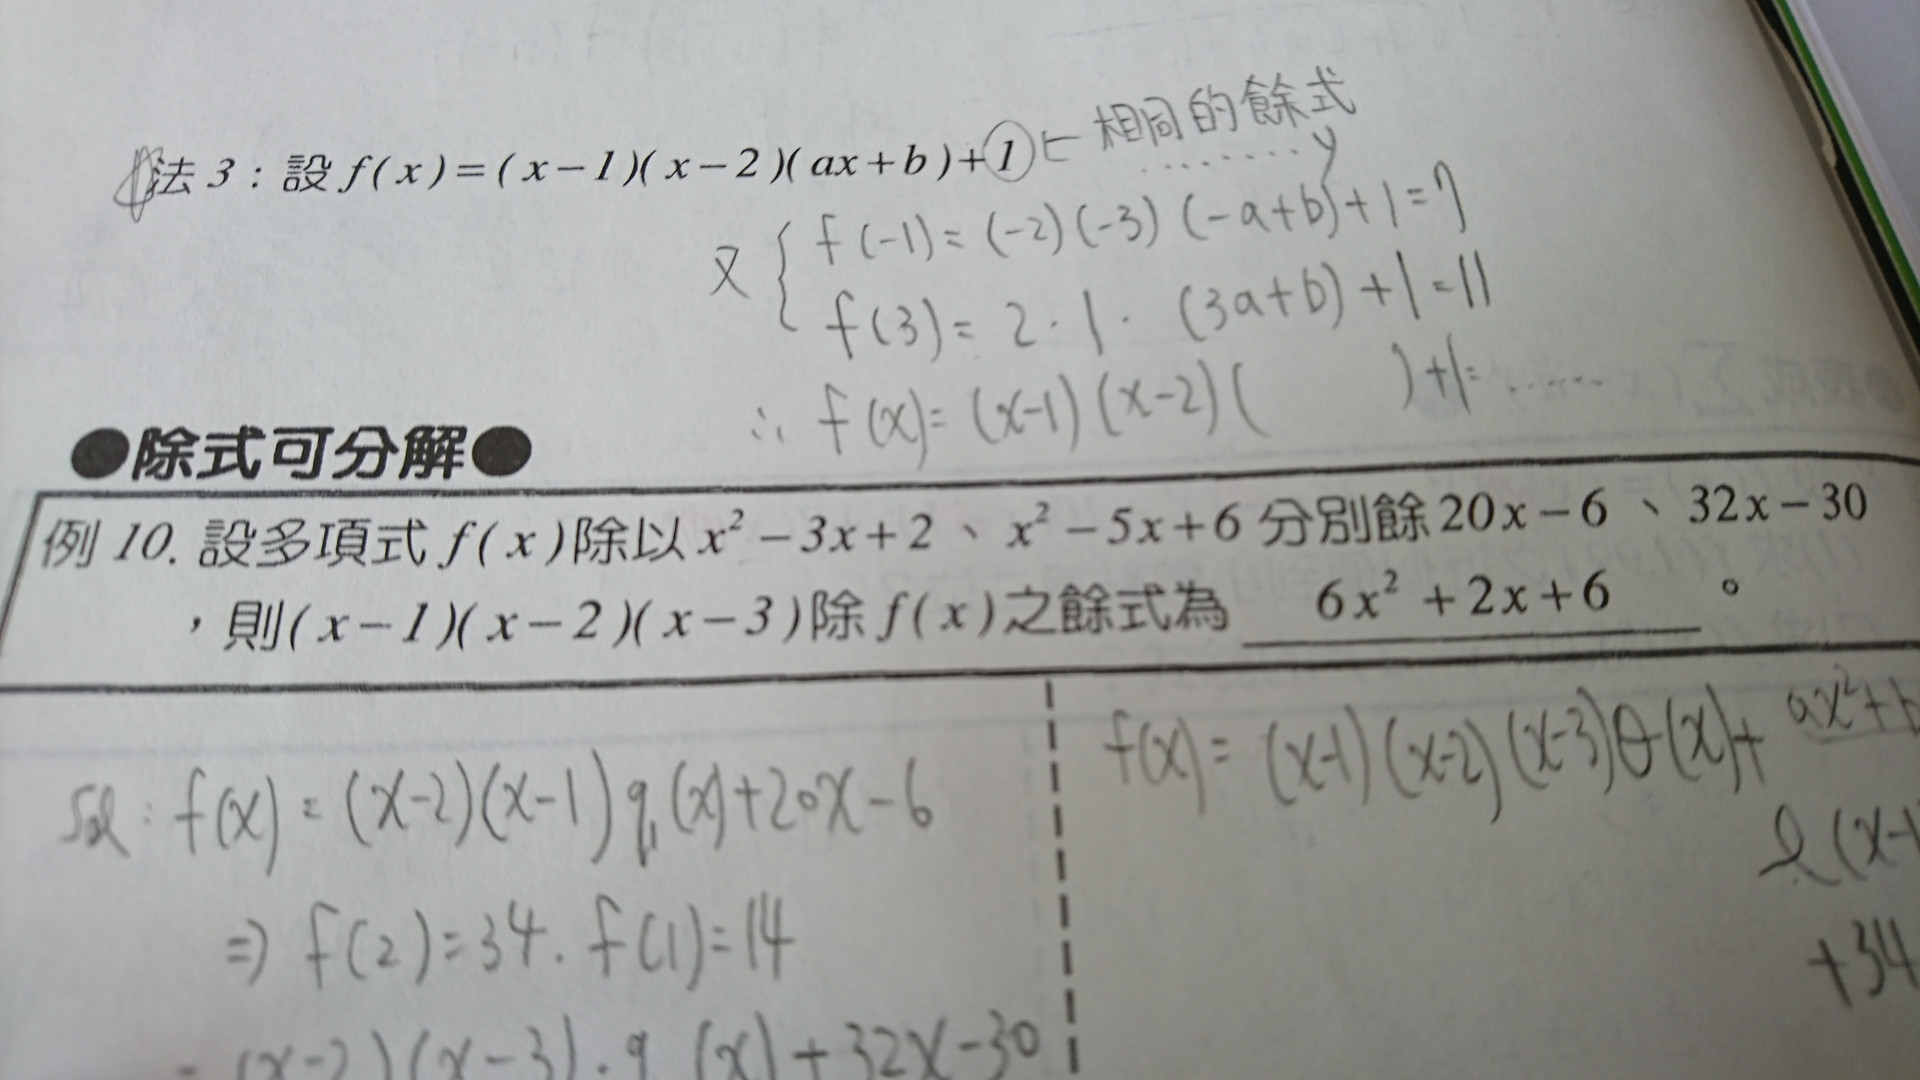 法 3：設 f(x)=(x-1)(x-2)(ax+b)+1 ← 相同的餘式
又 { f(-1)=(-2)(-3)(-a+b)+1=7
f(3)=2·1·(3a+b)+1=11
∴ f(x)=(x-1)(x-2)( )+1=……
●除式可分解●
例 10. 設多項式 f(x)除以 x²-3x+2、x²-5x+6 分別餘 20x-6、32x-30
，則(x-1)(x-2)(x-3)除 f(x)之餘式為 6x²+2x+6 。
Sol：f(x)=(x-2)(x-1)q₁(x)+20x-6
⇒ f(2)=34. f(1)=14
=(x-2)(x-3)·q (x)+32x-30
f(x)=(x-1)(x-2)(x-3)Q(x)+ax²+b
(x-1
+34